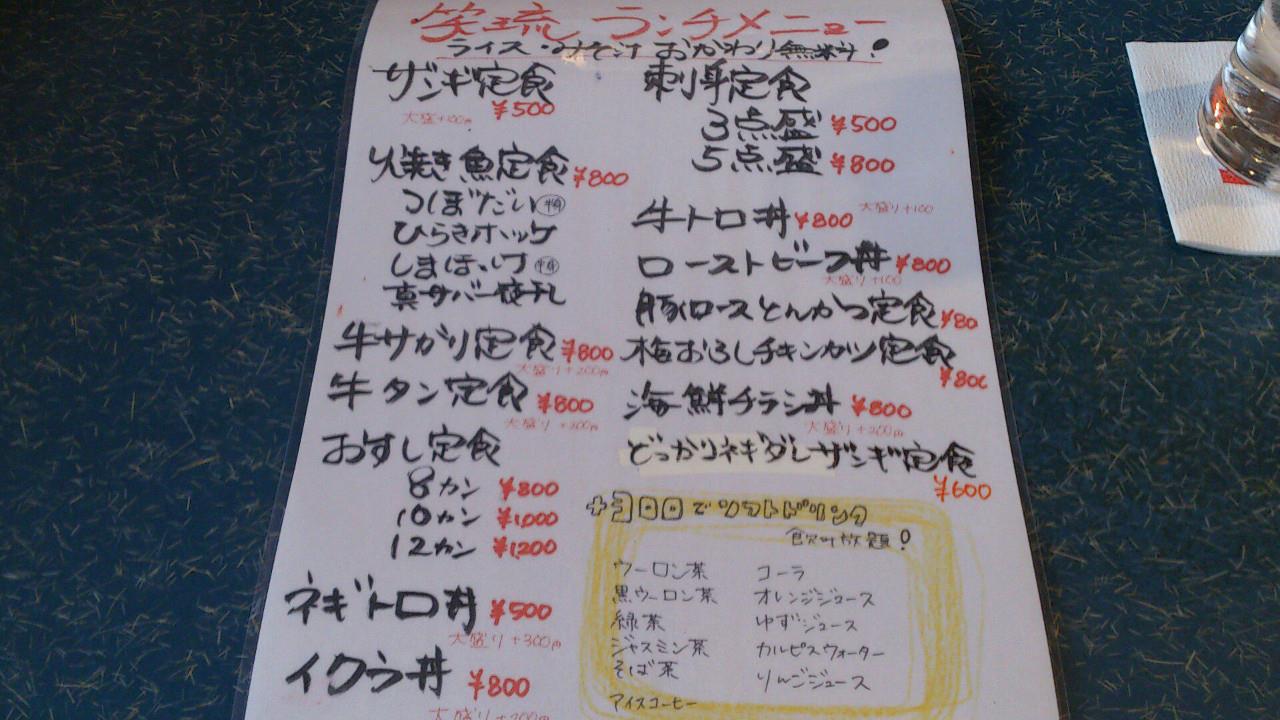 笑流 ランチメニュー
ライス・みそ汁 おかわり無料!
ザンギ定食
¥500
大盛+100円
焼き魚定食 ¥800
つぼだい
ひらきホッケ
しまほっけ
真サバ一夜干し
牛サガリ定食 ¥800
大盛り+200円
牛タン定食 ¥800
大盛り+200円
おすし定食
8カン ¥800
10カン ¥1,000
12カン ¥1,200
ネギトロ丼 ¥500
大盛り+300円
イクラ丼 ¥800
大盛り+200円
刺身定食
3点盛 ¥500
5点盛 ¥800
牛トロ丼 ¥800 大盛り+100
ローストビーフ丼 ¥800
大盛り+100
豚ロースとんかつ定食 ¥80
梅おろしチキンカツ定食
¥800
海鮮チラシ丼 ¥800
大盛り+200円
どっかりネギダレザンギ定食
¥600
+300でソフトドリンク
飲み放題!
ウーロン茶 コーラ
黒ウーロン茶 オレンジジュース
緑茶 ゆずジュース
ジャスミン茶 カルピスウォーター
そば茶 りんごジュース
アイスコーヒー